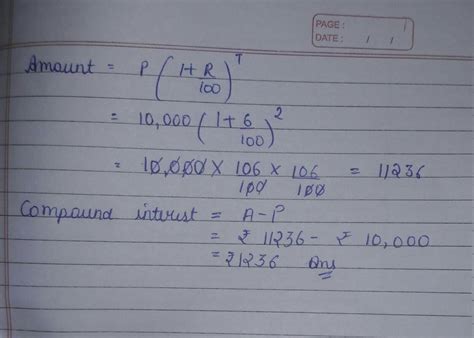 PAGE: /
DATE: / /
Amount = P (1+R/100)^T
= 10,000 (1+6/100)^2
= 10,000 × 106/100 × 106/100 = 11236
Compound interest = A-P
= ₹ 11236 - ₹ 10,000
= ₹1236 Ans